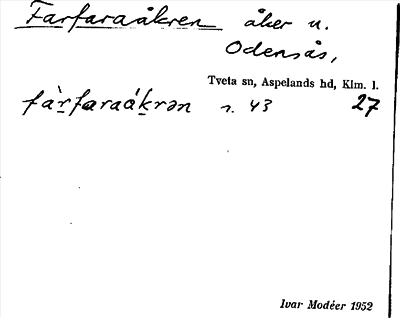 Farfaraåkren åker u.
Odensås,
Tveta sn, Aspelands hd, Klm. l.
fàr̲faraák̲rən r. 43 27
Ivar Modéer 1952